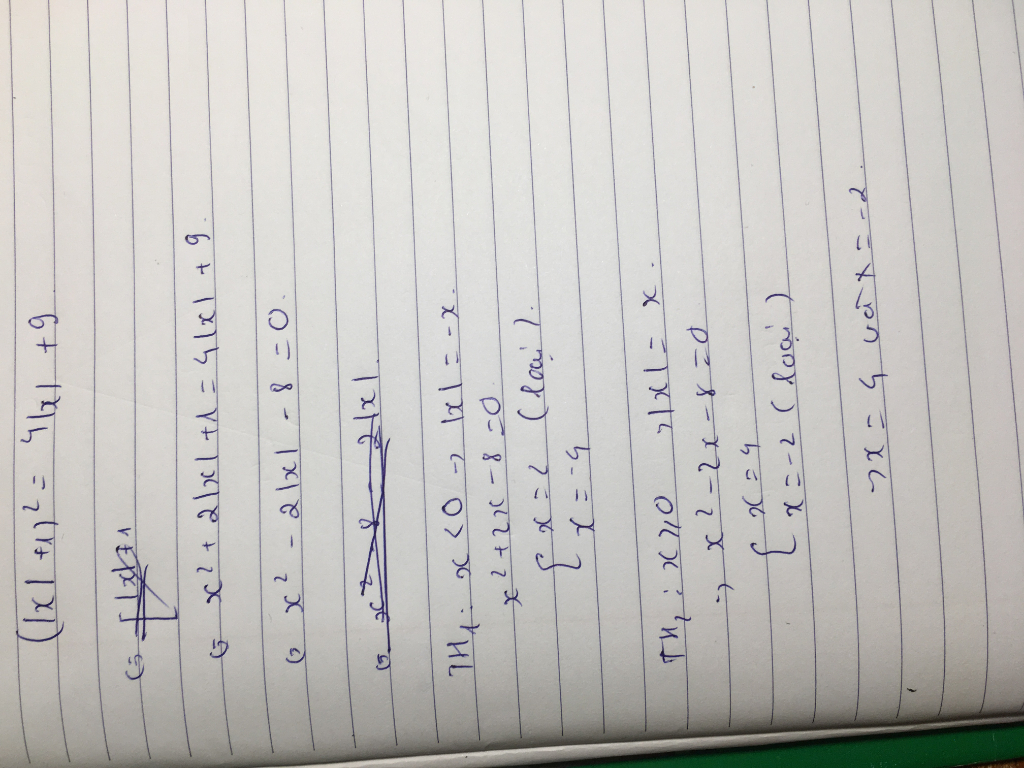 (|x| + 1)² = 4|x| + 9
x² + 2|x| + 1 = 4|x| + 9.
x² - 2|x| - 8 = 0.
x² - 8 = 2|x|
TH₁: x < 0 → |x| = -x.
x² + 2x - 8 = 0
[ x = 2 (loại).
x = -4
TH₂: x ≥ 0 → |x| = x.
→ x² - 2x - 8 = 0
[ x = 4
x = -2 (loại)
→ x = 4 và x = -2.